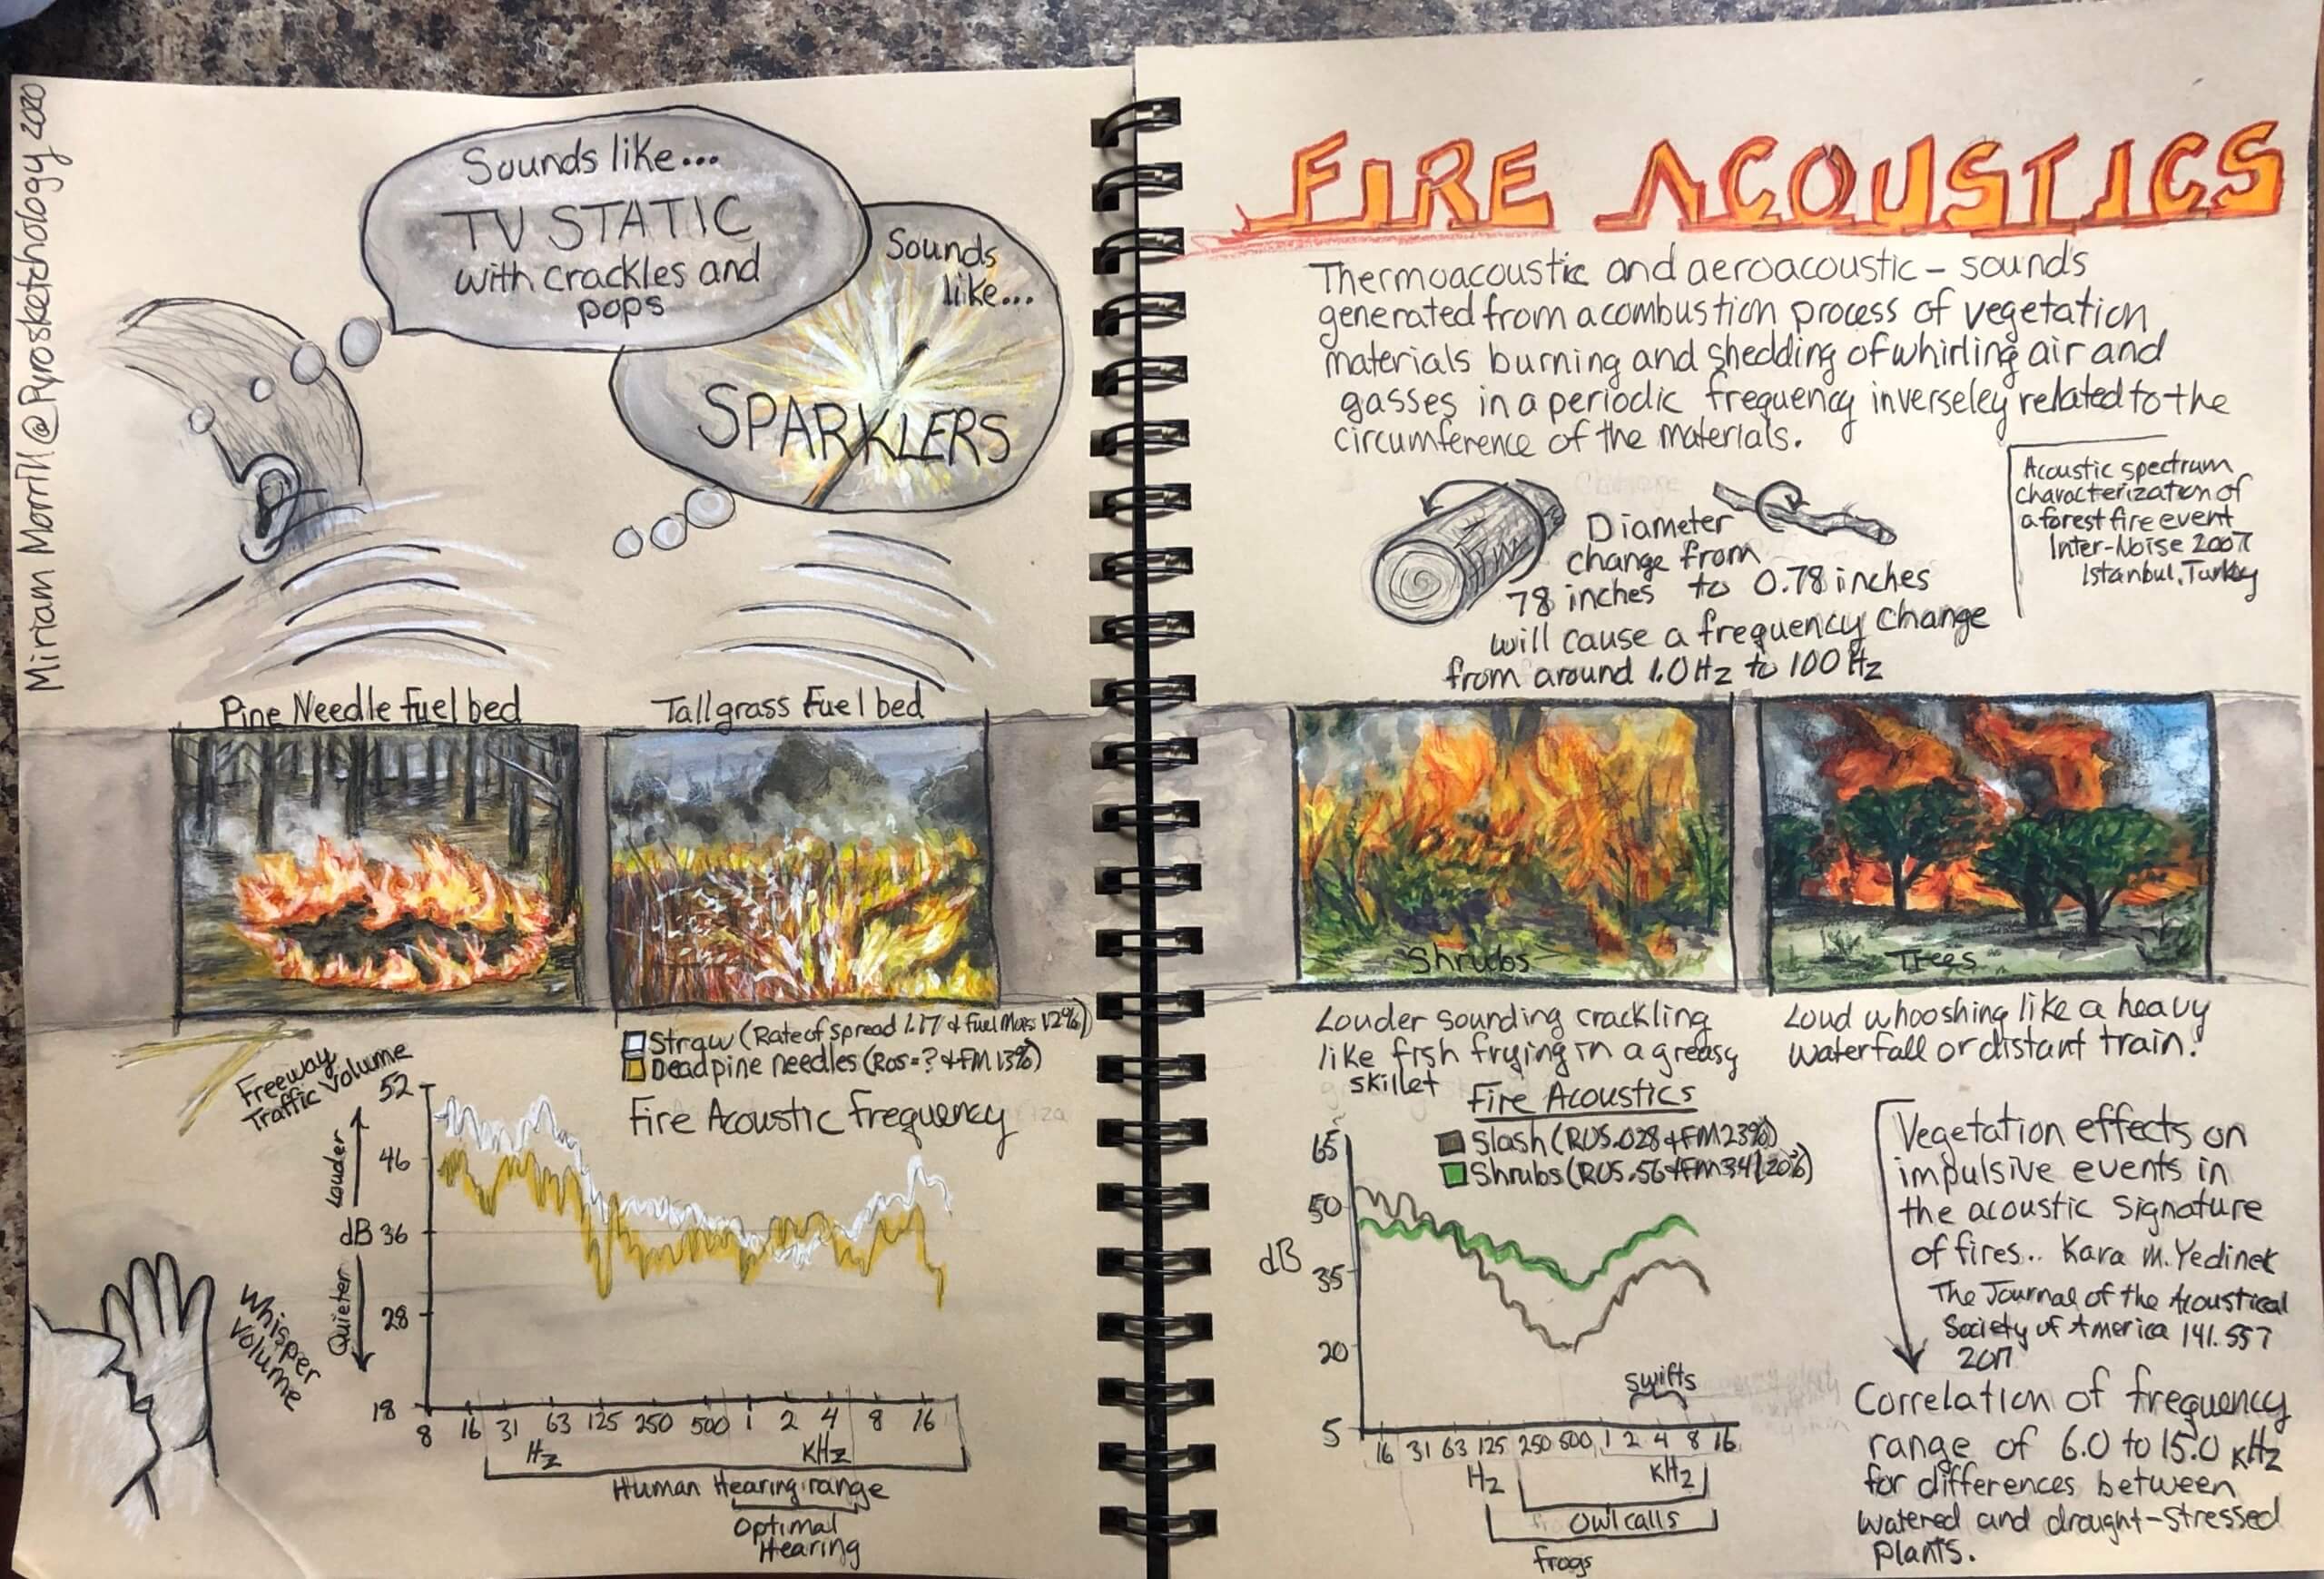 Miriam Morrill @Pyrosketchology 2020
Sounds like...
TV STATIC
with crackles and
pops
Sounds
like...
SPARKLERS
Pine Needle fuel bed
Tallgrass Fuel bed
Straw (Rate of spread 1.17 & Fuel Mois. 12%)
Dead pine needles (ROS=? & FM 13%)
Freeway
Traffic Volume
Fire Acoustic Frequency
52
46
dB 36
28
18
Louder
Quieter
Whisper
Volume
8 16 31 63 125 250 500 1 2 4 8 16
Hz KHz
Human Hearing range
Optimal
Hearing
FIRE ACOUSTICS
Thermoacoustic and aeroacoustic - sounds
generated from a combustion process of vegetation
materials burning and shedding of whirling air and
gasses in a periodic frequency inverseley related to the
circumference of the materials.
Acoustic spectrum
characterization of
a forest fire event
Inter-Noise 2007
Istanbul, Turkey
Diameter
change from
78 inches to 0.78 inches
will cause a frequency change
from around 1.0 Hz to 100 Hz
Shrubs
Trees
Louder sounding crackling
like fish frying in a greasy
skillet
Loud whooshing like a heavy
waterfall or distant train.
Fire Acoustics
Slash (ROS .028 & FM 23%)
Shrubs (ROS .56 & FM 34/20%)
65
50
dB
35
20
5
swifts
16 31 63 125 250 500 1 2 4 8 16
Hz KHz
Owl calls
frogs
Vegetation effects on
impulsive events in
the acoustic signature
of fires.. Kara M. Yedinek
The Journal of the Acoustical
Society of America 141.557
2017
Correlation of frequency
range of 6.0 to 15.0 KHz
for differences between
watered and drought-stressed
plants.